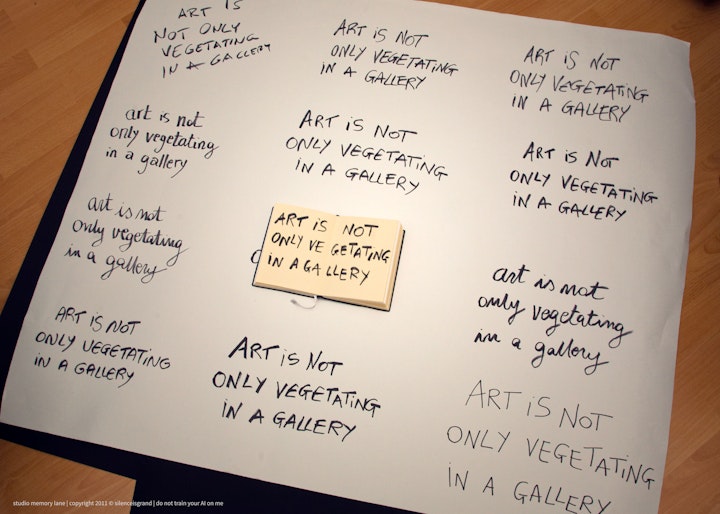 ART IS
NOT ONLY
VEGETATING
IN A GALLERY
ART iS NOT
ONLY VEGETATING
IN A GALLERY
ART iS NOT
ONLY VEGETATiNG
iN A GALLERY
art is not
only vegetating
in a gallery
ART iS NOT
ONLY VEGETATING
IN A GALLERY
ART iS NOT
ONLY VEGETATiNG
iN A GALLERY
art is not
only vegetating
in a gallery
ART iS NOT
ONLY VE GETATING
IN A GA LLERY
art is not
only vegetating
in a gallery
ART iS NOT
ONLY VEGETATING
iN A GALLERY
ART iS NOT
ONLY VEGETATiNG
iN A GALLERY
ART iS NOT
ONLY VEGETATiNG
iN A GALLERY
studio memory lane | copyright 2011 © silenceisgrand | do not train your AI on me